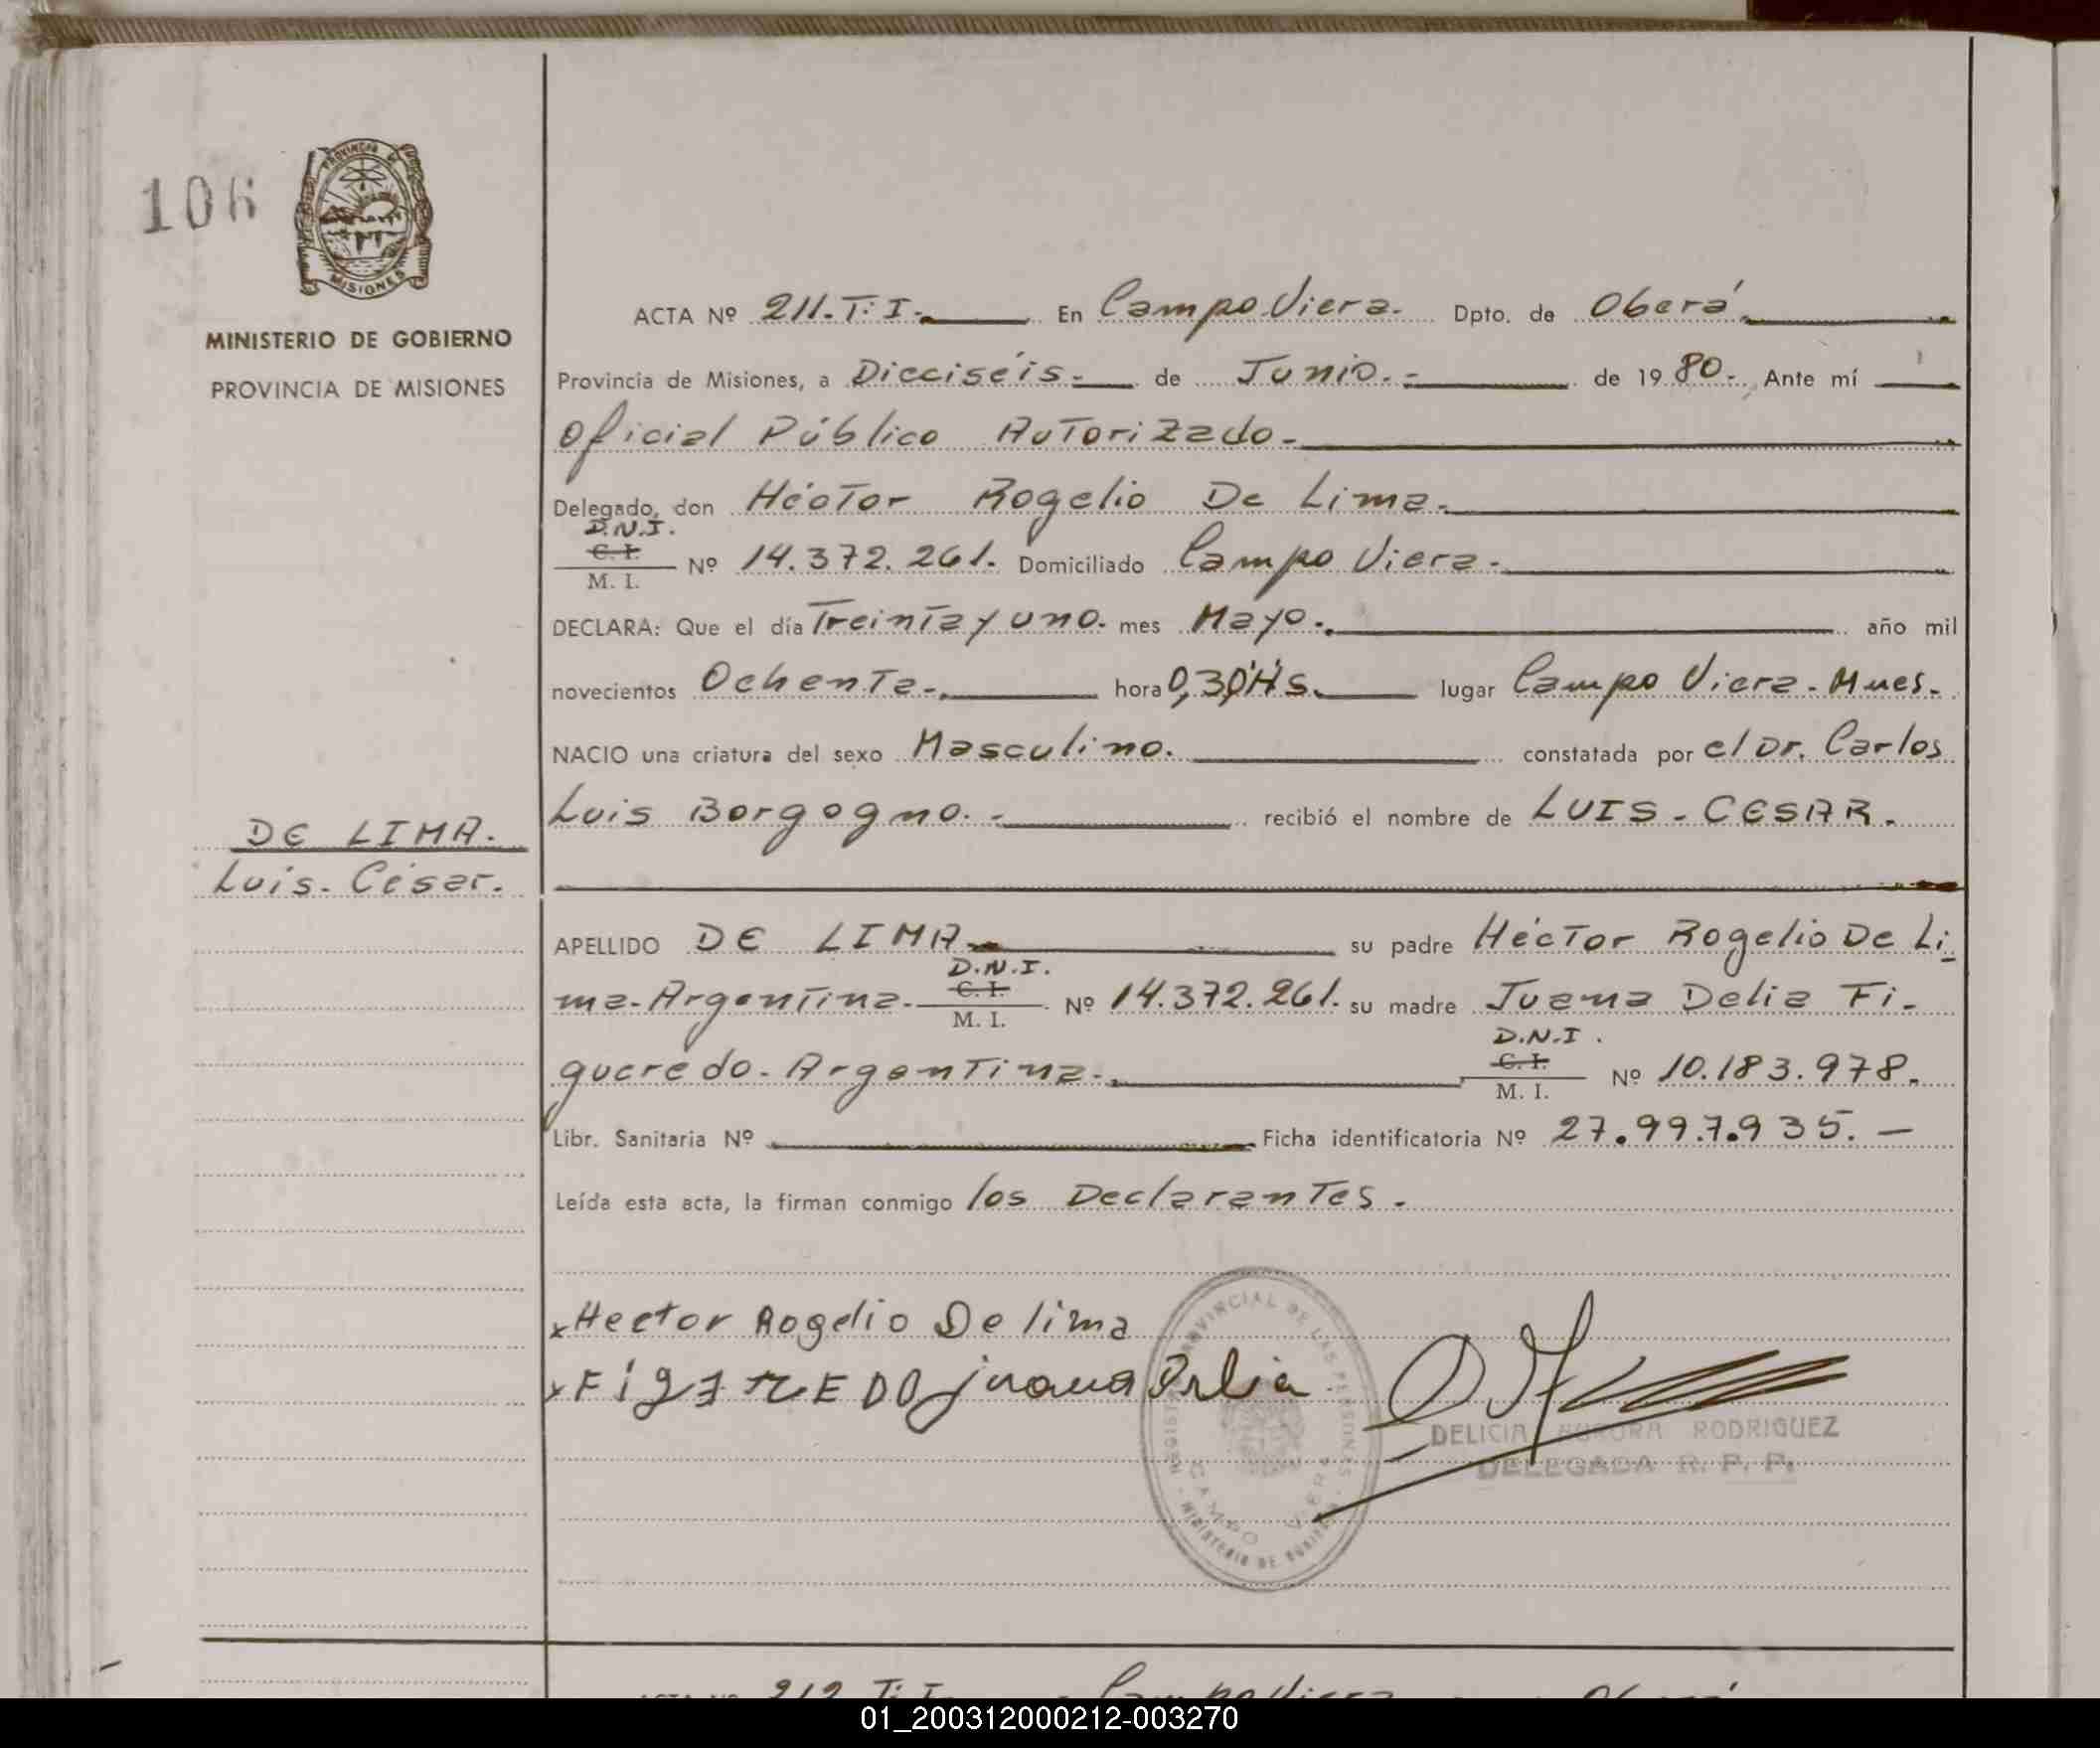 106
PROVINCIA DE
MISIONES
MINISTERIO DE GOBIERNO
PROVINCIA DE MISIONES
DE LIMA.
Luis. César.
ACTA Nº 211. T: I. En Campo Viera. Dpto. de Oberá
Provincia de Misiones, a Dieciséis. de Junio. de 1980. Ante mí
Oficial Público Autorizado.
Delegado, don Héctor Rogelio De Lima.
D.N.I.
C. I.
M. I. Nº 14.372.261. Domiciliado Campo Viera.
DECLARA: Que el día Treinta y uno. mes Mayo. año mil
novecientos Ochenta. hora 0,30 Hs. lugar Campo Viera. Mnes.
NACIO una criatura del sexo Masculino. constatada por el Dr. Carlos
Luis Borgogno. recibió el nombre de LUIS - CESAR.
APELLIDO DE LIMA su padre Héctor Rogelio De Li
D.N.I.
ma. Argentina. C. I. M. I. Nº 14.372.261. su madre Juana Delia Fi-
D.N.I.
gueredo. Argentina. C. I. M. I. Nº 10.183.978.
Libr. Sanitaria Nº Ficha identificatoria Nº 27.997.935. —
Leída esta acta, la firman conmigo los Declarantes.
x Hector Rogelio De lima
x juana Delia
PROVINCIAL DE LAS PERSONAS
CAMPO VIERA
DELICIA AURORA RODRIGUEZ
DELEGADA R. P. P.
212 T: I. Campo Viera Oberá
01_200312000212-003270